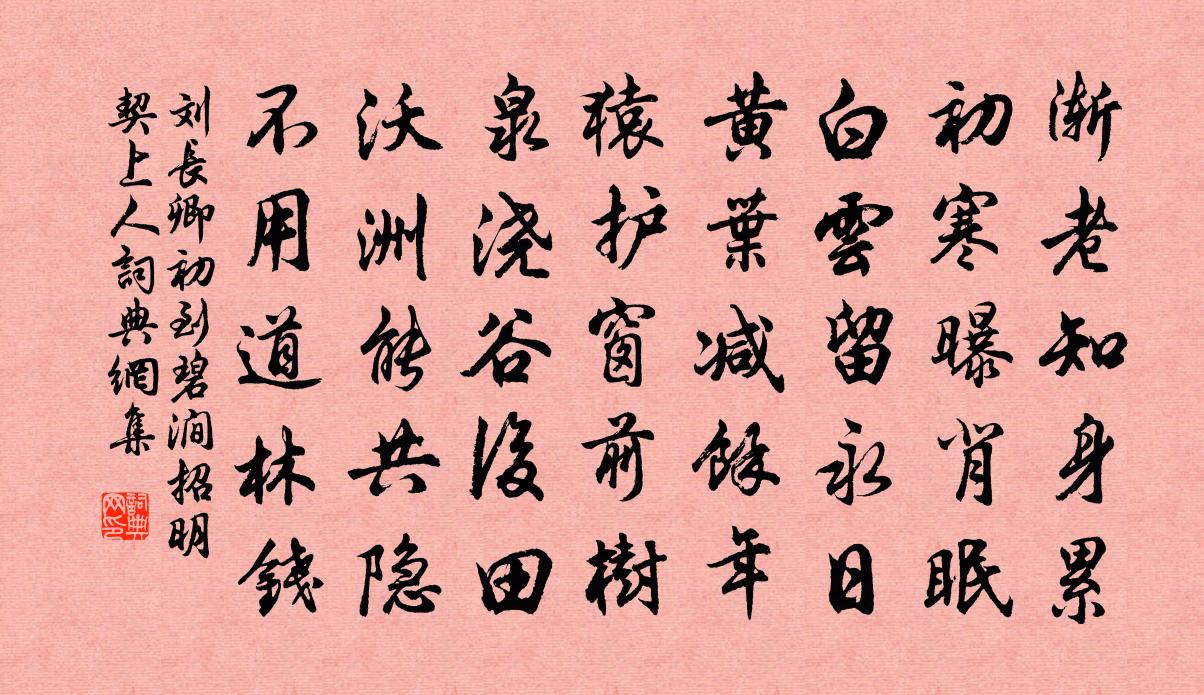 渐老知身累
初寒曝肖眠
白雲留永日
黄葉减餘年
猿护窗前樹
泉浇谷後田
沃洲能共隐
不用道林錢
刘長卿初到碧涧招明
契上人詞典網集
詞典
网印